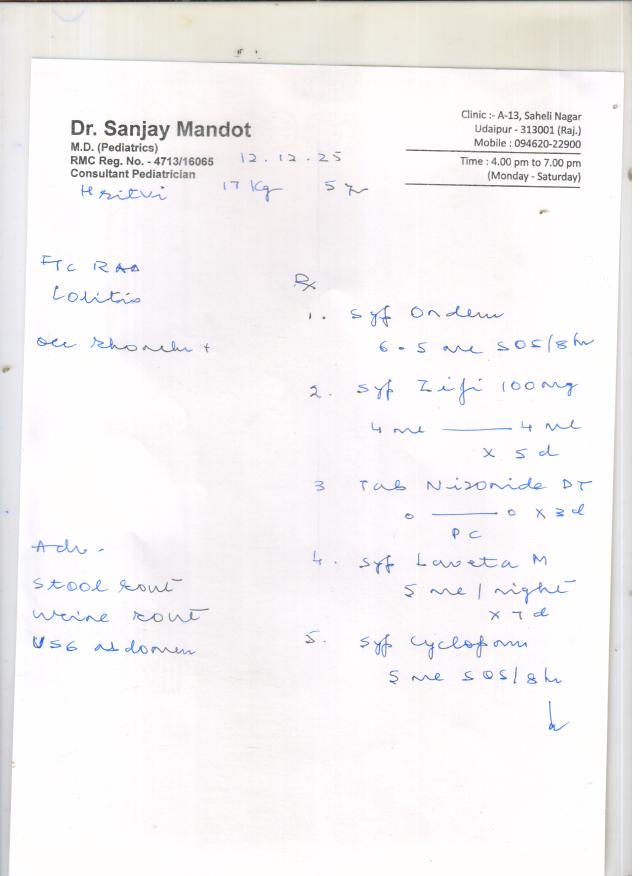 Dr. Sanjay Mandot
M.D. (Pediatrics)
RMC Reg. No. - 4713/16065
Consultant Pediatrician
Clinic :- A-13, Saheli Nagar
Udaipur - 313001 (Raj.)
Mobile : 094620-22900
Time : 4.00 pm to 7.00 pm
(Monday - Saturday)
12.12.25
Hritvi 17 Kg 5 yr
Colitis
occ Rhonchi +
Rx
1. Syp Ondem
6.5 ml SOS/8hr
2. Syp Zifi 100mg
4 ml —— 4 ml
x 5 d
3 Tab Nizonide DT
o —— o x 3d
PC
4. Syp Laveta M
5 ml / night
x 7 d
5. Syp Cyclopam
5 ml SOS/8hr
Adv -
Stool rout
Urine rout
USG abdomen